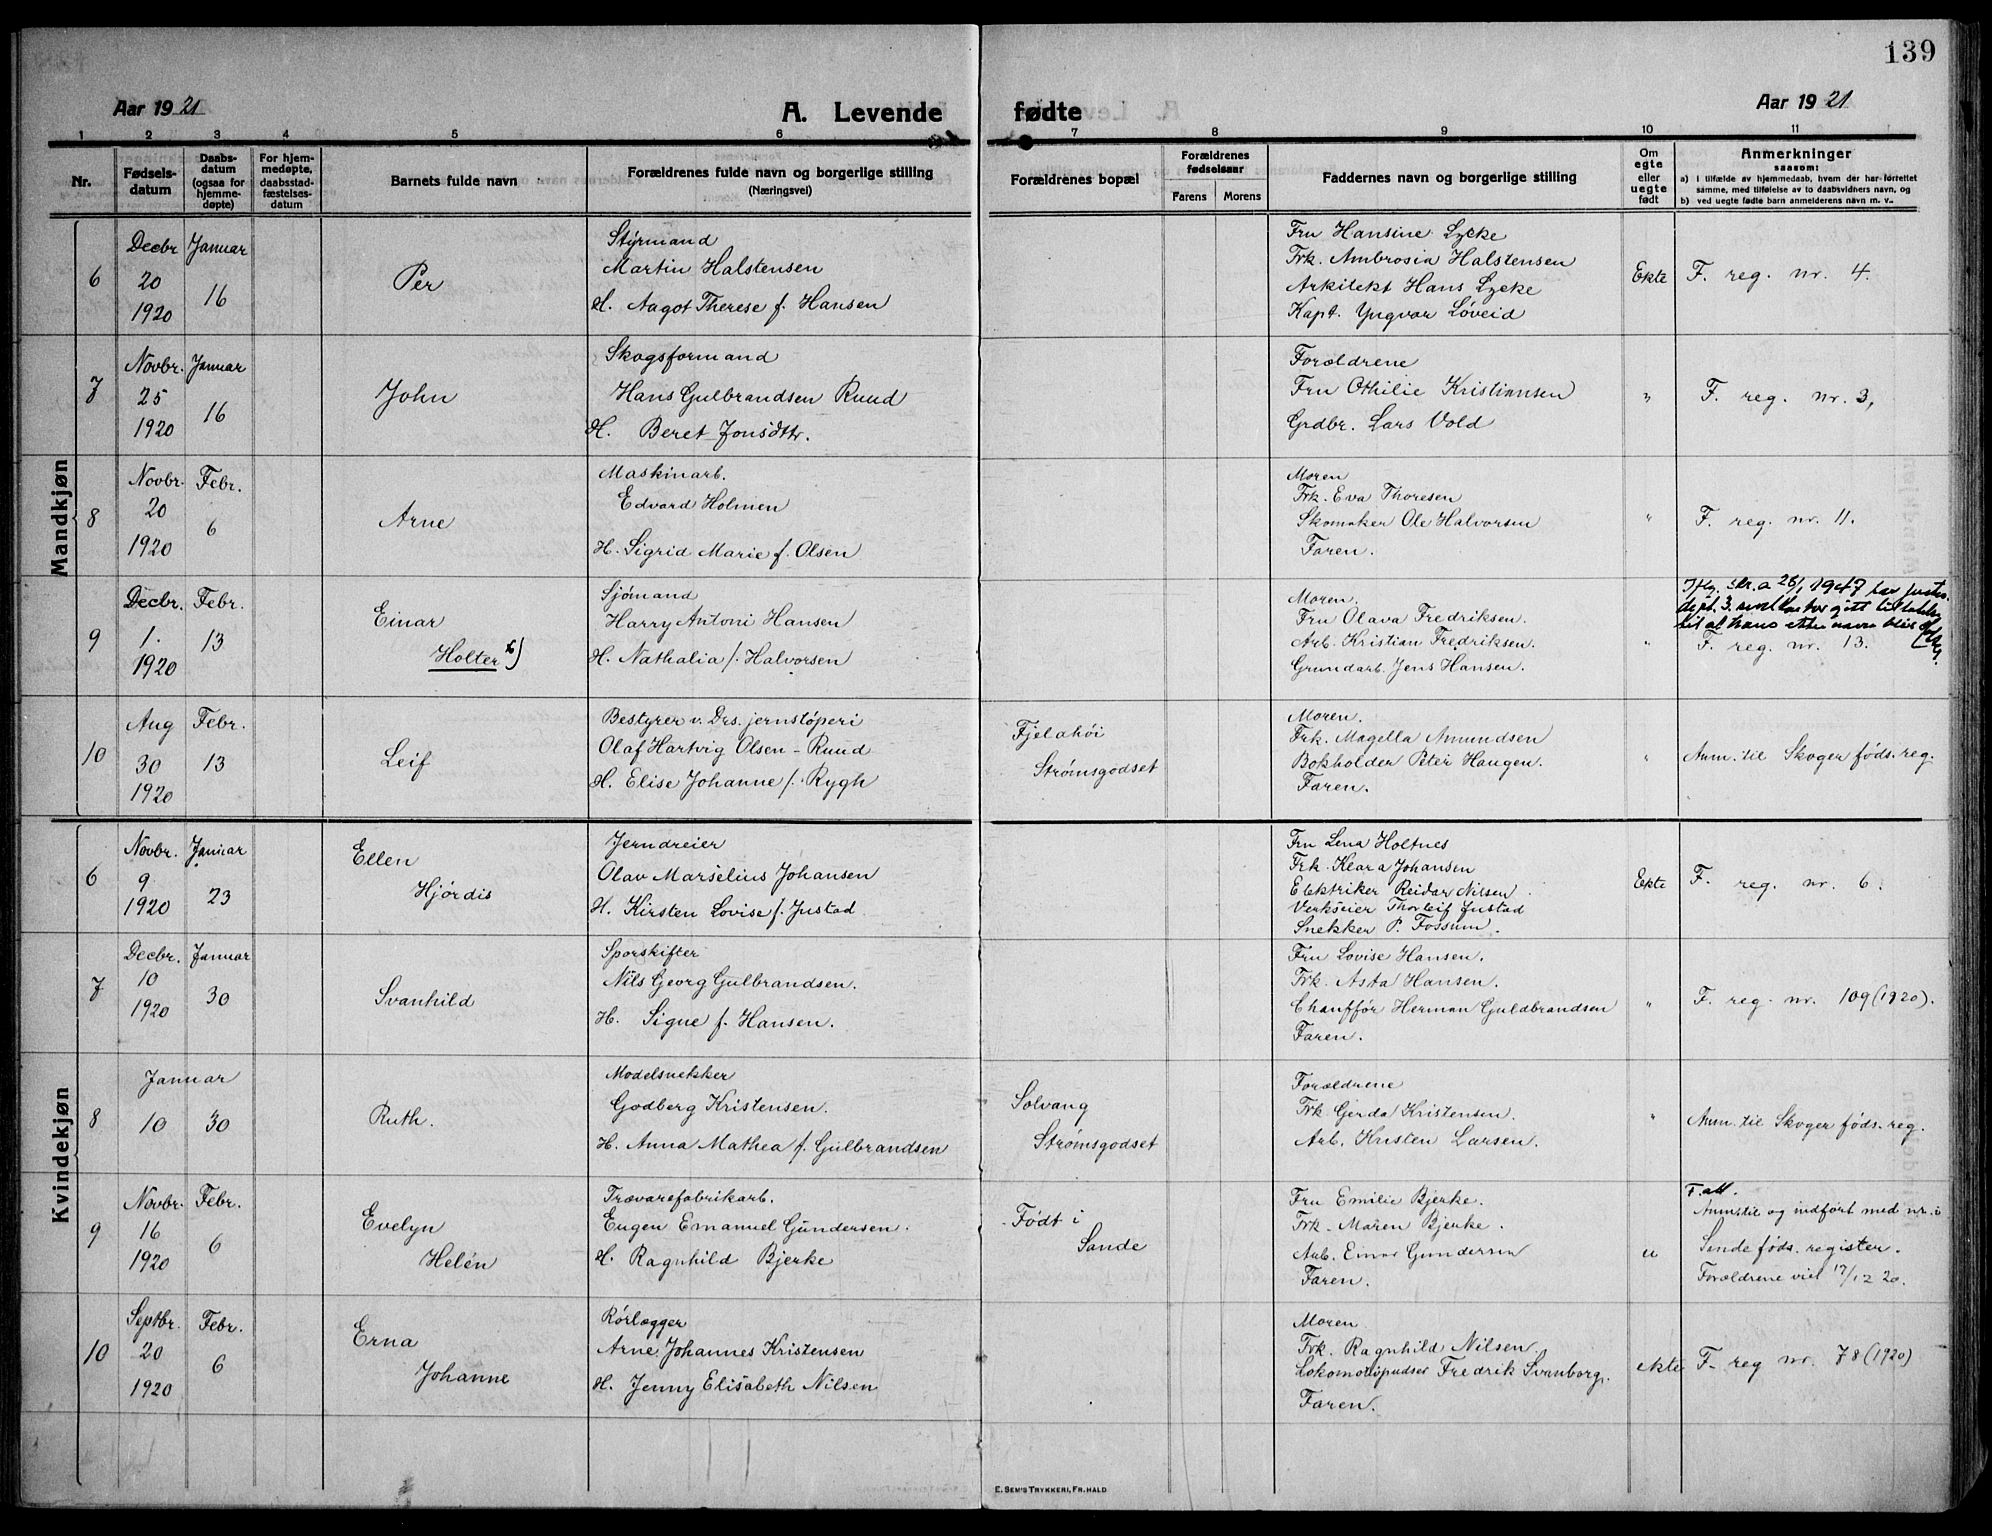 139
Aar 1921
A. Levende fødte
Aar 1921
1 2 3 4 5 6 7 8 9 10 11
Nr.
Fødsels-
datum
Daabs-
datum
(ogsaa for
hjemme-
døpte)
For hjem-
medøpte,
daabsstad-
fæstelses-
datum
Barnets fulde navn
Forældrenes fulde navn og borgerlige stilling
(Næringsvei)
Forældrenes bopæl
Forældrenes
fødselsaar
Farens Morens
Faddernes navn og borgerlige stilling
Om
egte
eller
uegte
født
Anmerkninger
saasom:
a) i tilfælde av hjemmedaab, hvem der har forrettet
samme, med tilføielse av to daabsvidners navn, og
b) ved uegte fødte barn anmelderens navn m. v.
Mandkjøn
6
Decbr
20
1920
Januar
16
Per
Styrmand
Martin Halstensen
H. Aagot Therese f. Hansen
Fru Hansine Lycke
Frk. Ambrosia Halstensen
Arkitekt Hans Lycke
Kapt. Yngvar Løveid
Ekte
F. reg. nr. 4.
7
Novbr.
25
1920
Januar
16
John
Skogsformand
Hans Gulbrandsen Ruud
H. Beret Jonsdtr.
Forældrene
Fru Othilie Kristiansen
Grdbr. Lars Vold
"
F. reg. nr. 3,
8
Novbr.
20
1920
Febr.
6
Arne
Maskinarb.
Edvard Holmen
H. Sigrid Marie f. Olsen
Moren
Frk. Eva Thoresen
Skomaker Ole Halvorsen
Faren.
"
F. reg. nr. 11.
9
Decbr.
1.
1920
Febr.
13
Einar
Holter x)
Sjømand
Harry Antoni Hansen
H. Nathalia f. Halvorsen
Moren.
Fru Olava Fredriksen.
Arb. Kristian Fredriksen.
Grundarb. Jens Hansen.
"
Ifg. skr. a 26/1 1947 har justis-
dept. 3. sivilkontor gitt tillatelse
til at hans etternavn blir
F. reg. nr. 13.
10
Aug
30
1920
Febr.
13
Leif
Bestyrer v. Drs. jernstøperi
Olaf Hartvig Olsen - Ruud
H. Elise Johanne f. Rygh
Fjelahøi
Strømsgodset
Moren.
Frk. Magella Amundsen
Bokholder Peter Haugen.
Faren.
"
Anm. til Skoger føds. reg.
Kvindekjøn
6
Novbr.
9
1920
Januar
23
Ellen
Hjørdis
Jerndreier
Olav Marselius Johansen
H. Kirsten Lovise f. Justad
Fru Lena Holtnes
Frk. Klara Johansen
Elektriker Reidar Nilsen
Verkseier Thorleif Justad
Snekker P. Fossum.
Ekte
F. reg. nr. 6.
7
Decbr.
10
1920
Januar
30
Svanhild
Sporskifter
Nils Georg Gulbrandsen.
H. Signe f. Hansen.
Fru Lovise Hansen.
Frk. Asta Hansen.
Chauffør Herman Guldbrandsen
Faren.
"
F. reg. nr. 109 (1920).
8
Januar
10
30
Ruth.
Modelsnekker
Godberg Kristensen.
H. Anna Mathea f. Gulbrandsen
Solvang
Strømsgodset
Forældrene
Frk Gerda Kristensen.
Arb. Kristen Larsen.
"
Anm. til Skoger føds. reg.
9
Novbr.
16
1920
Febr.
6
Evelyn
Helén
Trævarefabrikarb.
Eugen Emanuel Gundersen.
H. Ragnhild Bjerke
Født i
Sande
Fru Emilie Bjerke.
Frk. Maren Bjerke.
Arb. Einar Gundersen
Faren.
u
F. att.
Anm. til og indført med nr. i
Sande føds. register.
Forældrene viet 17/12 20.
10
Septbr.
20
1920
Febr.
6
Erna
Johanne
Rørlægger
Arne Johannes Kristensen
H. Jenny Elisabeth Nilsen
Moren
Frk. Ragnhild Nilsen
Lokomotivpudser Fredrik Svanborg.
Faren.
ekte
F. reg nr. 78 (1920)
E. SEM'S TRYKKERI, FR.HALD